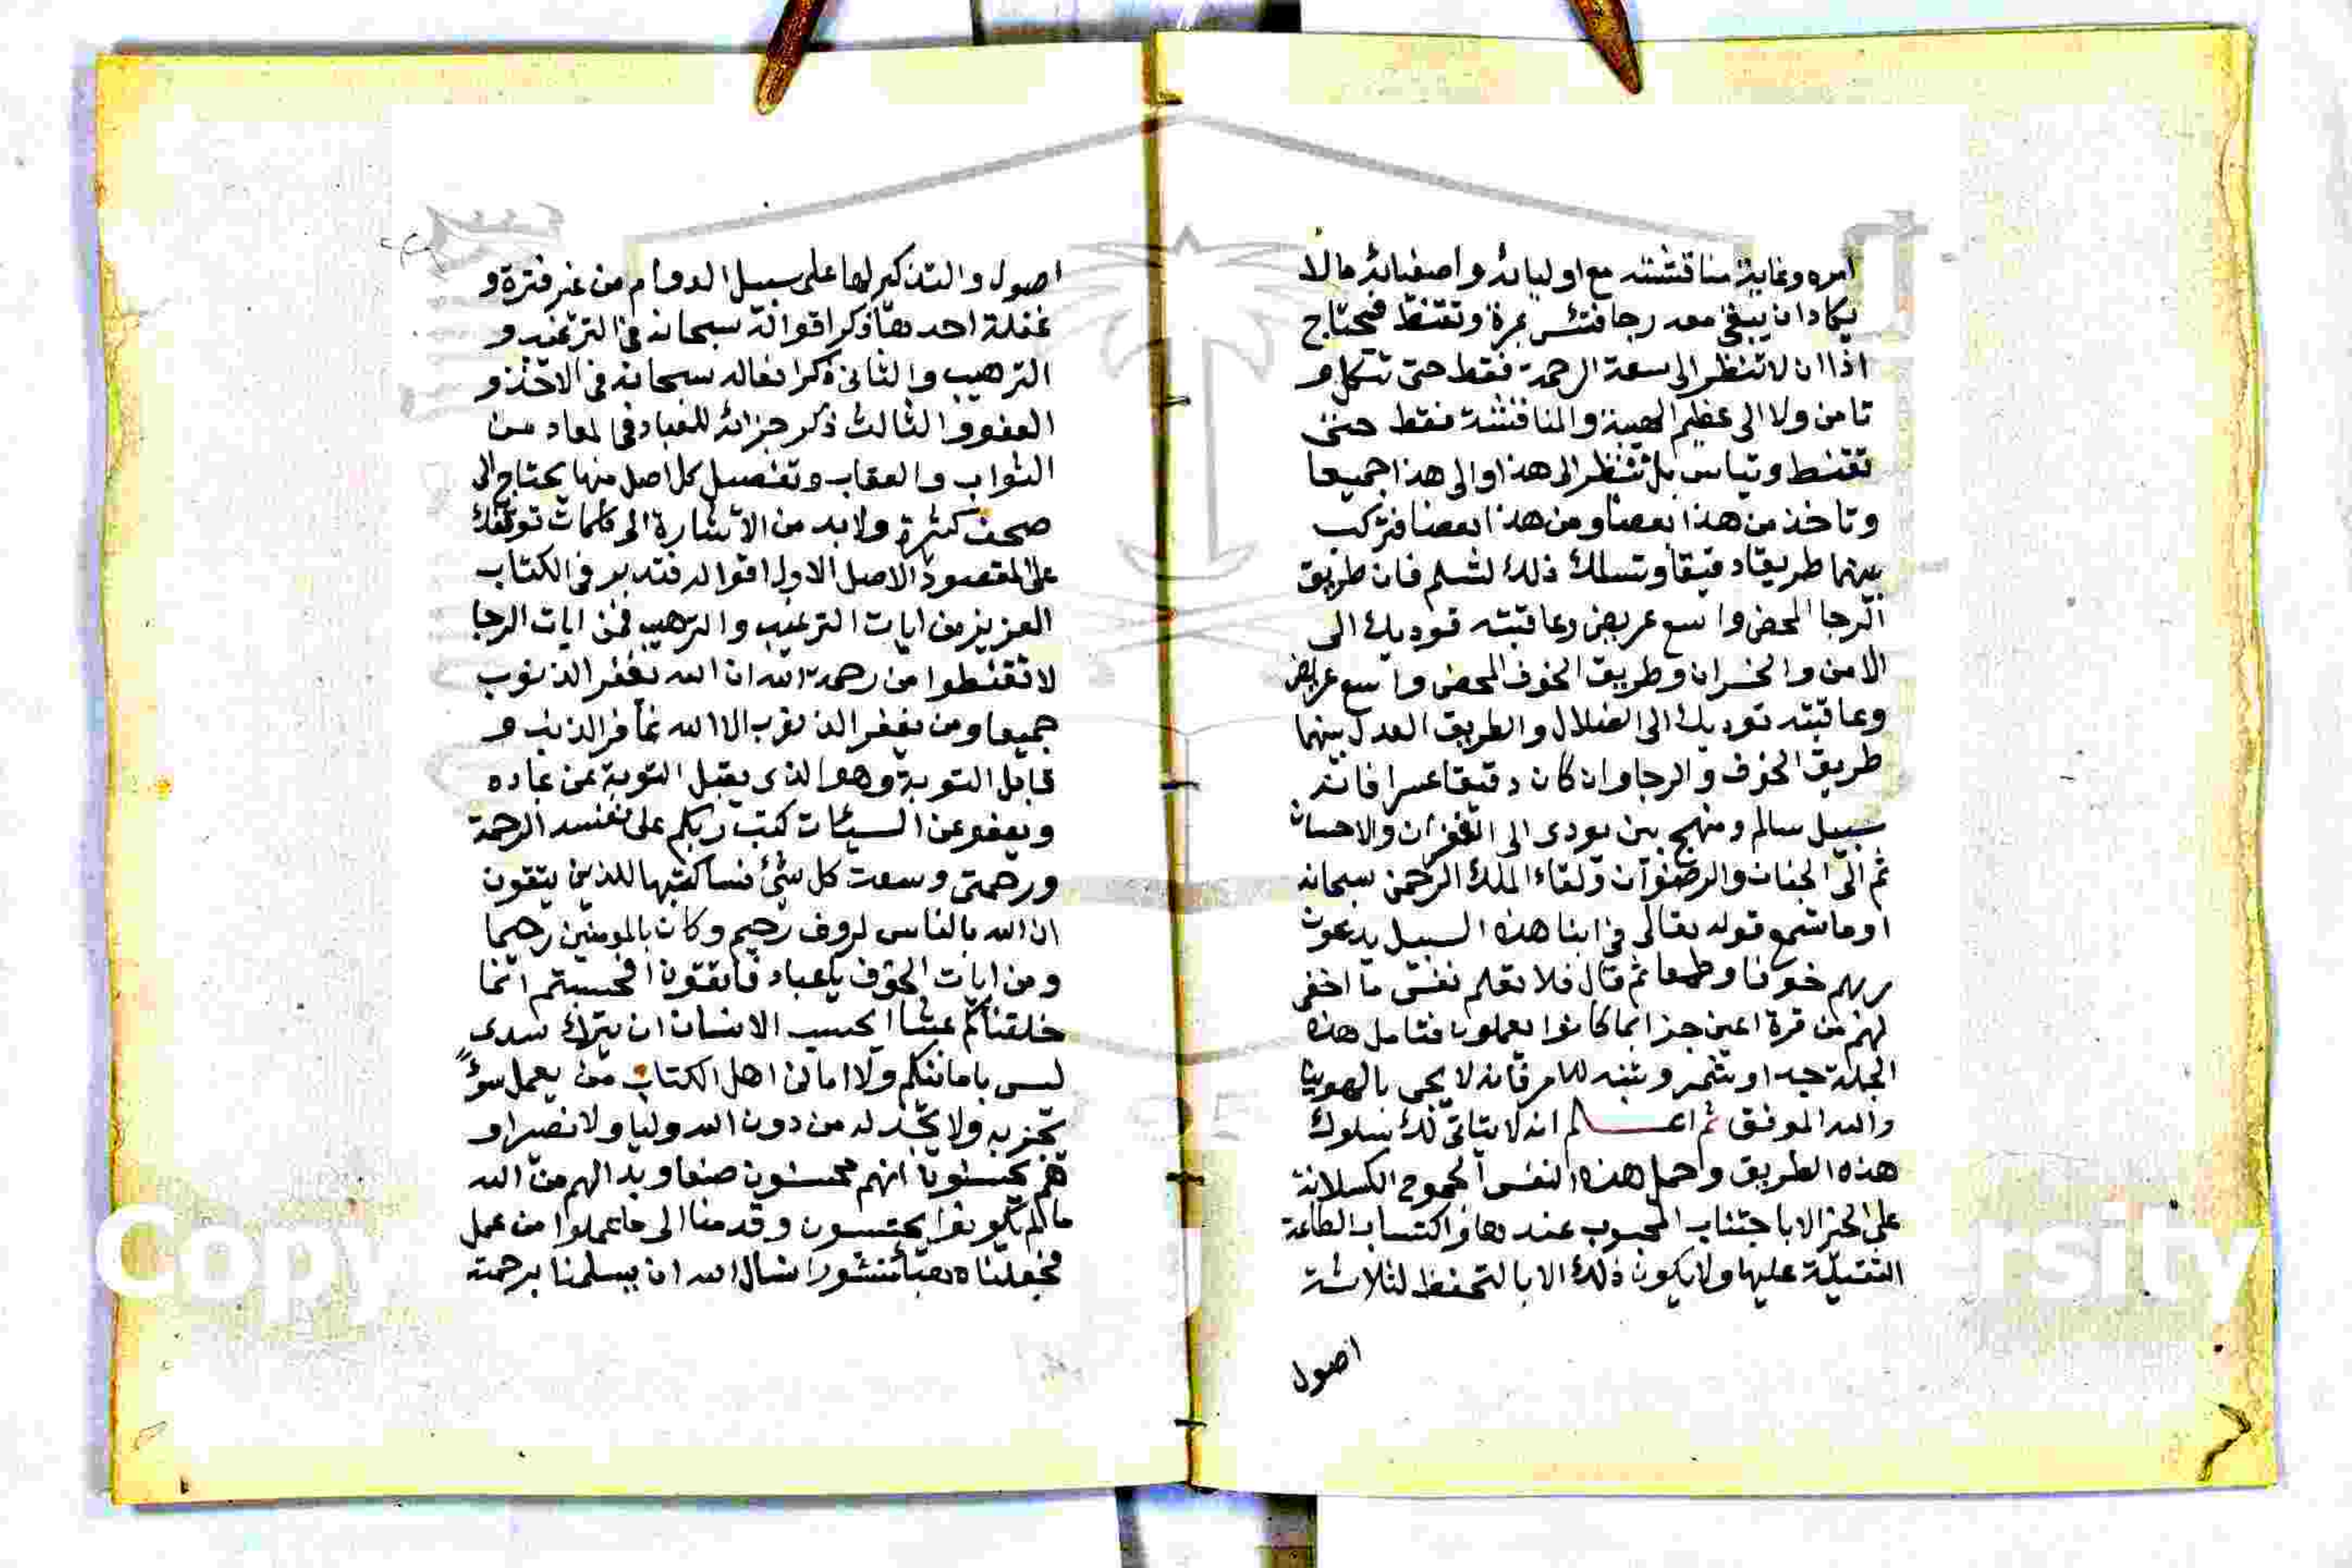 امره وغاية مناقشته مع اوليائه واصفيائه مالا
يكاد ان يبقى معه رجا فتئس بمرة وتقنط فتحتاج
اذا ان لا تنظر الى سعة الرحمة فقط حتى تتكل و
تامن ولا الى عظيم الهيبة والمناقشة فقط حتى
تقنط وتياس بل تنظر الى هذا والى هذا جميعا
وتاخذ من هذا بعضا ومن هذا بعضا فتركب
بينهما طريقا دقيقا وتسلك ذلك لتسلم فان طريق
الرجا المحض واسع عريض وعاقبته توديك الى
الامن والخسران وطريق الخوف المحض واسع عريض
وعاقبته توديك الى الضلال والطريق العدل بينهما
طريق الخوف والرجا وان كان دقيقا عسرا فانه
سبيل سالم ومنهج بين يودى الى الغفران والاحسان
ثم الى الجنان والرضوان ولقاء الملك الرحمن سبحانه
اوما تسمع قوله تعالى في ابنا هذه السبيل يدعون
ربهم خوفا وطمعا ثم قال فلا تعلم نفس ما اخفى
لهم من قرة اعين جزا بما كانوا يعملون فتامل هذه
الجملة جدا وتشمر وتنبه للامر فانه لا يجى بالهوينا
والله الموفق ثم اعلم انه لا يتاتى لك سلوك
هذه الطريق وحمل هذه النفس الجموح الكسلانة
على الخير الا باجتناب المحبوب عندها واكتساب الطاعة
الثقيلة عليها ولا يكون ذلك الا بالتحفظ لثلاثة
اصول
اصول والتذكير لها على سبيل الدوام من غير فترة و
غفلة احدها ذكر اقواله سبحانه في الترغيب و
الترهيب والثانى ذكر افعاله سبحانه في الاخذ و
العفو والثالث ذكر جزائه للعباد في المعاد من
الثواب والعقاب وتفصيل كل اصل منها يحتاج الى
صحف كثيرة ولا بد من الاشارة الى كلمات توقفك
على المقصود الاصل الاول اقواله فتدبر في الكتاب
العزيز من ايات الترغيب والترهيب فمن ايات الرجا
لا تقنطوا من رحمة الله ان الله يغفر الذنوب
جميعا ومن يغفر الذنوب الا الله غافر الذنب و
قابل التوبة وهو الذى يقبل التوبة عن عباده
ويعفو عن السيئات كتب ربكم على نفسه الرحمة
ورحمتى وسعت كل شئ فساكتبها للذين يتقون
ان الله بالناس لروف رحيم وكان بالمومنين رحيما
ومن ايات الخوف يا عباد فاتقون افحسبتم انما
خلقناكم عبثا ايحسب الانسان ان يترك سدى
ليس بامانيكم ولا امانى اهل الكتاب من يعمل سوءً
يجز به ولا يجد له من دون الله وليا ولا نصيرا و
هم يحسبون انهم محسنون صنعا وبدا لهم من الله
ما لم يكونوا يحتسبون وقدمنا الى ما عملوا من عمل
فجعلناه هباء منثورا نسال الله ان يسلمنا برحمته
Copy
rsity